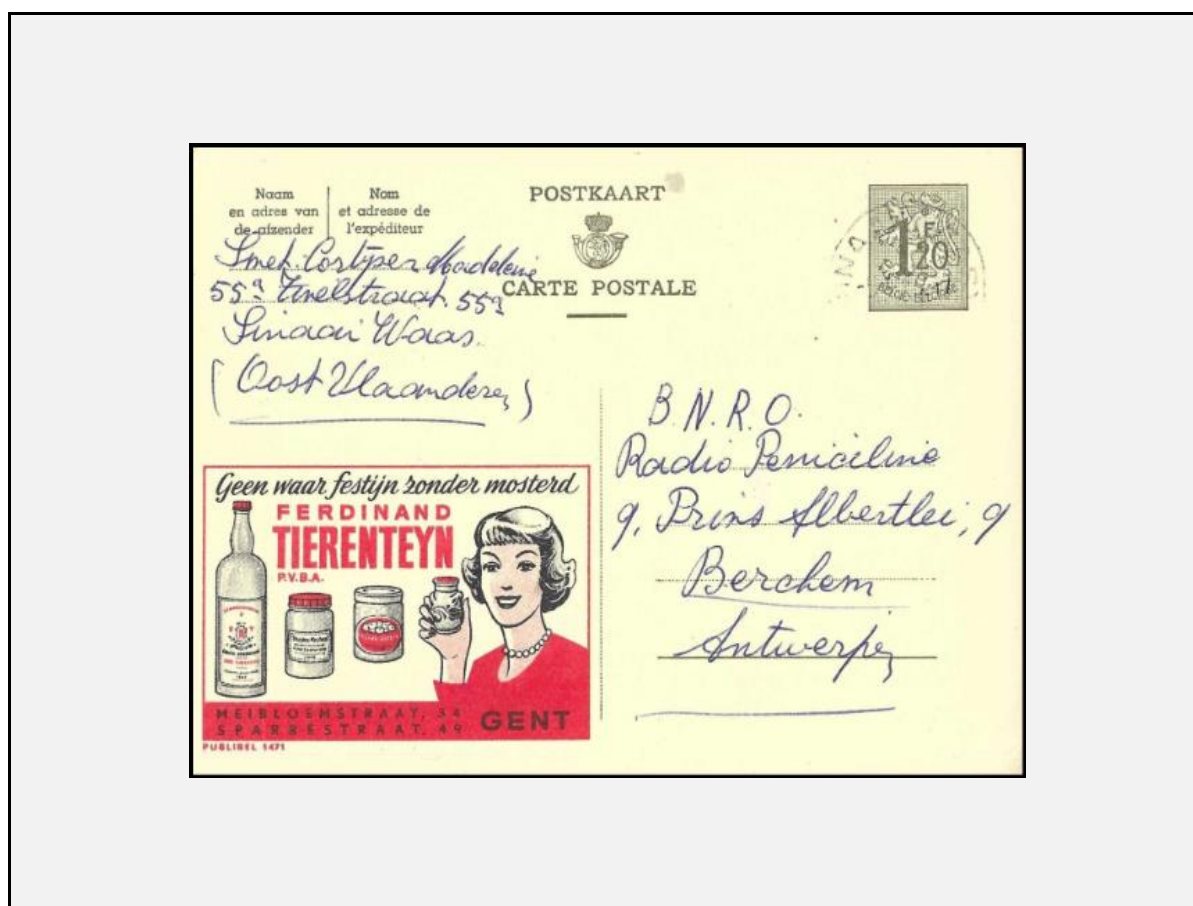 Naam
en adres van
de afzender
Nom
et adresse de
l'expéditeur
POSTKAART
CARTE POSTALE
1F20
BELGIE-BELGIQUE
Smet. Cortyper Madeleine
55a straat. 55a
Sinaai Waas.
(Oost Vlaanderen)
B.N.R.O.
Radio Peniciline
9, Prins Albertlei, 9
Berchem
Antwerpen
Geen waar festijn zonder mosterd
FERDINAND
TIERENTEYN
P.V.B.A.
MEIBLOEMSTRAAT, 34
SPARRESTRAAT, 49
GENT
PUBLIBEL 1471